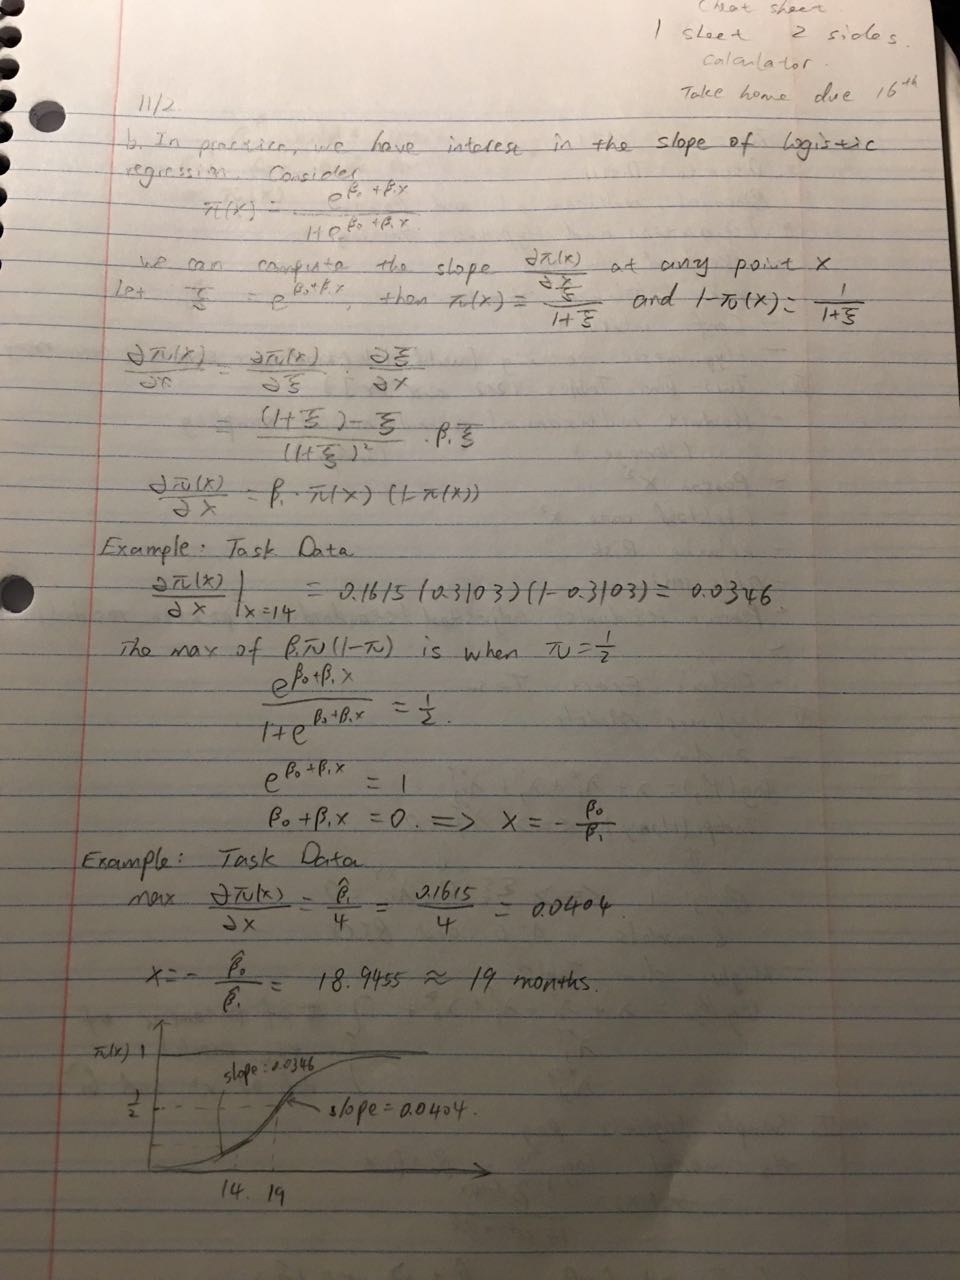 Cheat sheet
1 sheet 2 sides.
calculator.
Take home due 16th
11/2
b. In practice, we have interest in the slope of logistic
regression. Consider
π(x) = e^(β₀+β₁x) / (1+e^(β₀+β₁x))
we can compute the slope ∂π(x)/∂x at any point x
Let ξ = e^(β₀+β₁x), then π(x) = ξ/(1+ξ) and 1-π(x) = 1/(1+ξ)
∂π(x)/∂x = ∂π(x)/∂ξ · ∂ξ/∂x
= ((1+ξ) - ξ)/(1+ξ)² · β₁ξ
∂π(x)/∂x = β₁ · π(x) (1-π(x))
Example: Task Data
∂π(x)/∂x |x=14 = 0.1615 (0.3103)(1-0.3103) = 0.0346
The max of β₁π(1-π) is when π = 1/2
e^(β₀+β₁x) / (1+e^(β₀+β₁x)) = 1/2.
e^(β₀+β₁x) = 1
β₀+β₁x = 0. => x = - β₀/β₁
Example: Task Data
max ∂π(x)/∂x = β̂₁/4 = 0.1615/4 = 0.0404
x = - β̂₀/β̂₁ = 18.9455 ≈ 19 months.
π(x) 1
slope = 0.0346
1/2
slope = 0.0404.
14. 19